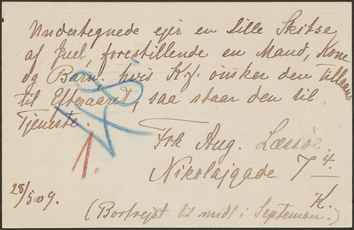 Undertegnede ejer en lille Skitse
af Juel, forestillende en Mand, Kone
og Barn. hvis K.f. ønsker den tillaans
til Efteraaret, saa staar den til
Tjeneste.
Fra Aug. Læssøe.
Nikolajgade 7 4.
K.
28/5 09.
(Bortrejst til midt i September.)
1.